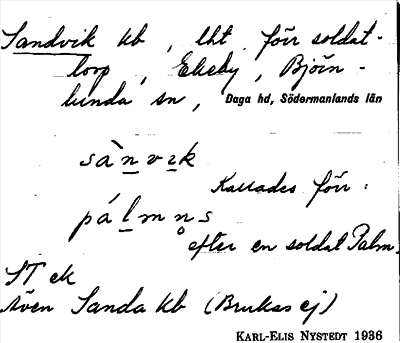 Sandvik kb, lht. förr soldat-
torp, Ekeby, Björn-
lunda sn, Daga hd, Södermanlands län
sàn̲vɪ̲k
Kallades förr:
pál̲mn̥s
efter en soldat Palm.
ST ek
Även Sanda kb (Brukas ej)
KARL-ELIS NYSTEDT 1936